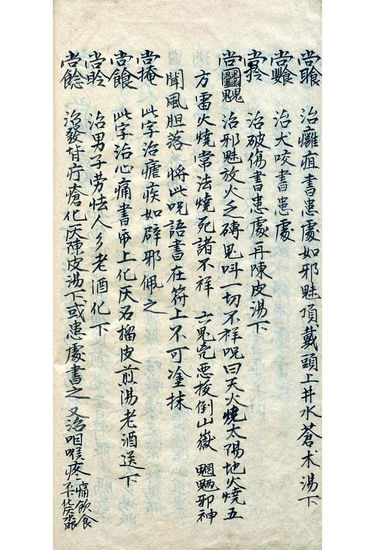 治癰疽書患處如邪魅項戴頭上井水蒼术湯下
治犬咬書患處
治破傷書患處再陳皮湯下
治邪魅放火乏磚鬼叫一切不祥呪曰天火燒太陽地火燒五
方雷火燒常法燒死諸不祥 惡 倒山嶽 魍魎邪神
聞風胆落 將此呪語書在符上不可塗抹
此字治瘧疾如辟邪佩之
此字治心痛書 上化灰石榴皮煎湯老酒送下
治男子劳怯人 老酒化下
治發背疔瘡化灰陳皮湯下或患處書之 又治咽喉疼痛飲食